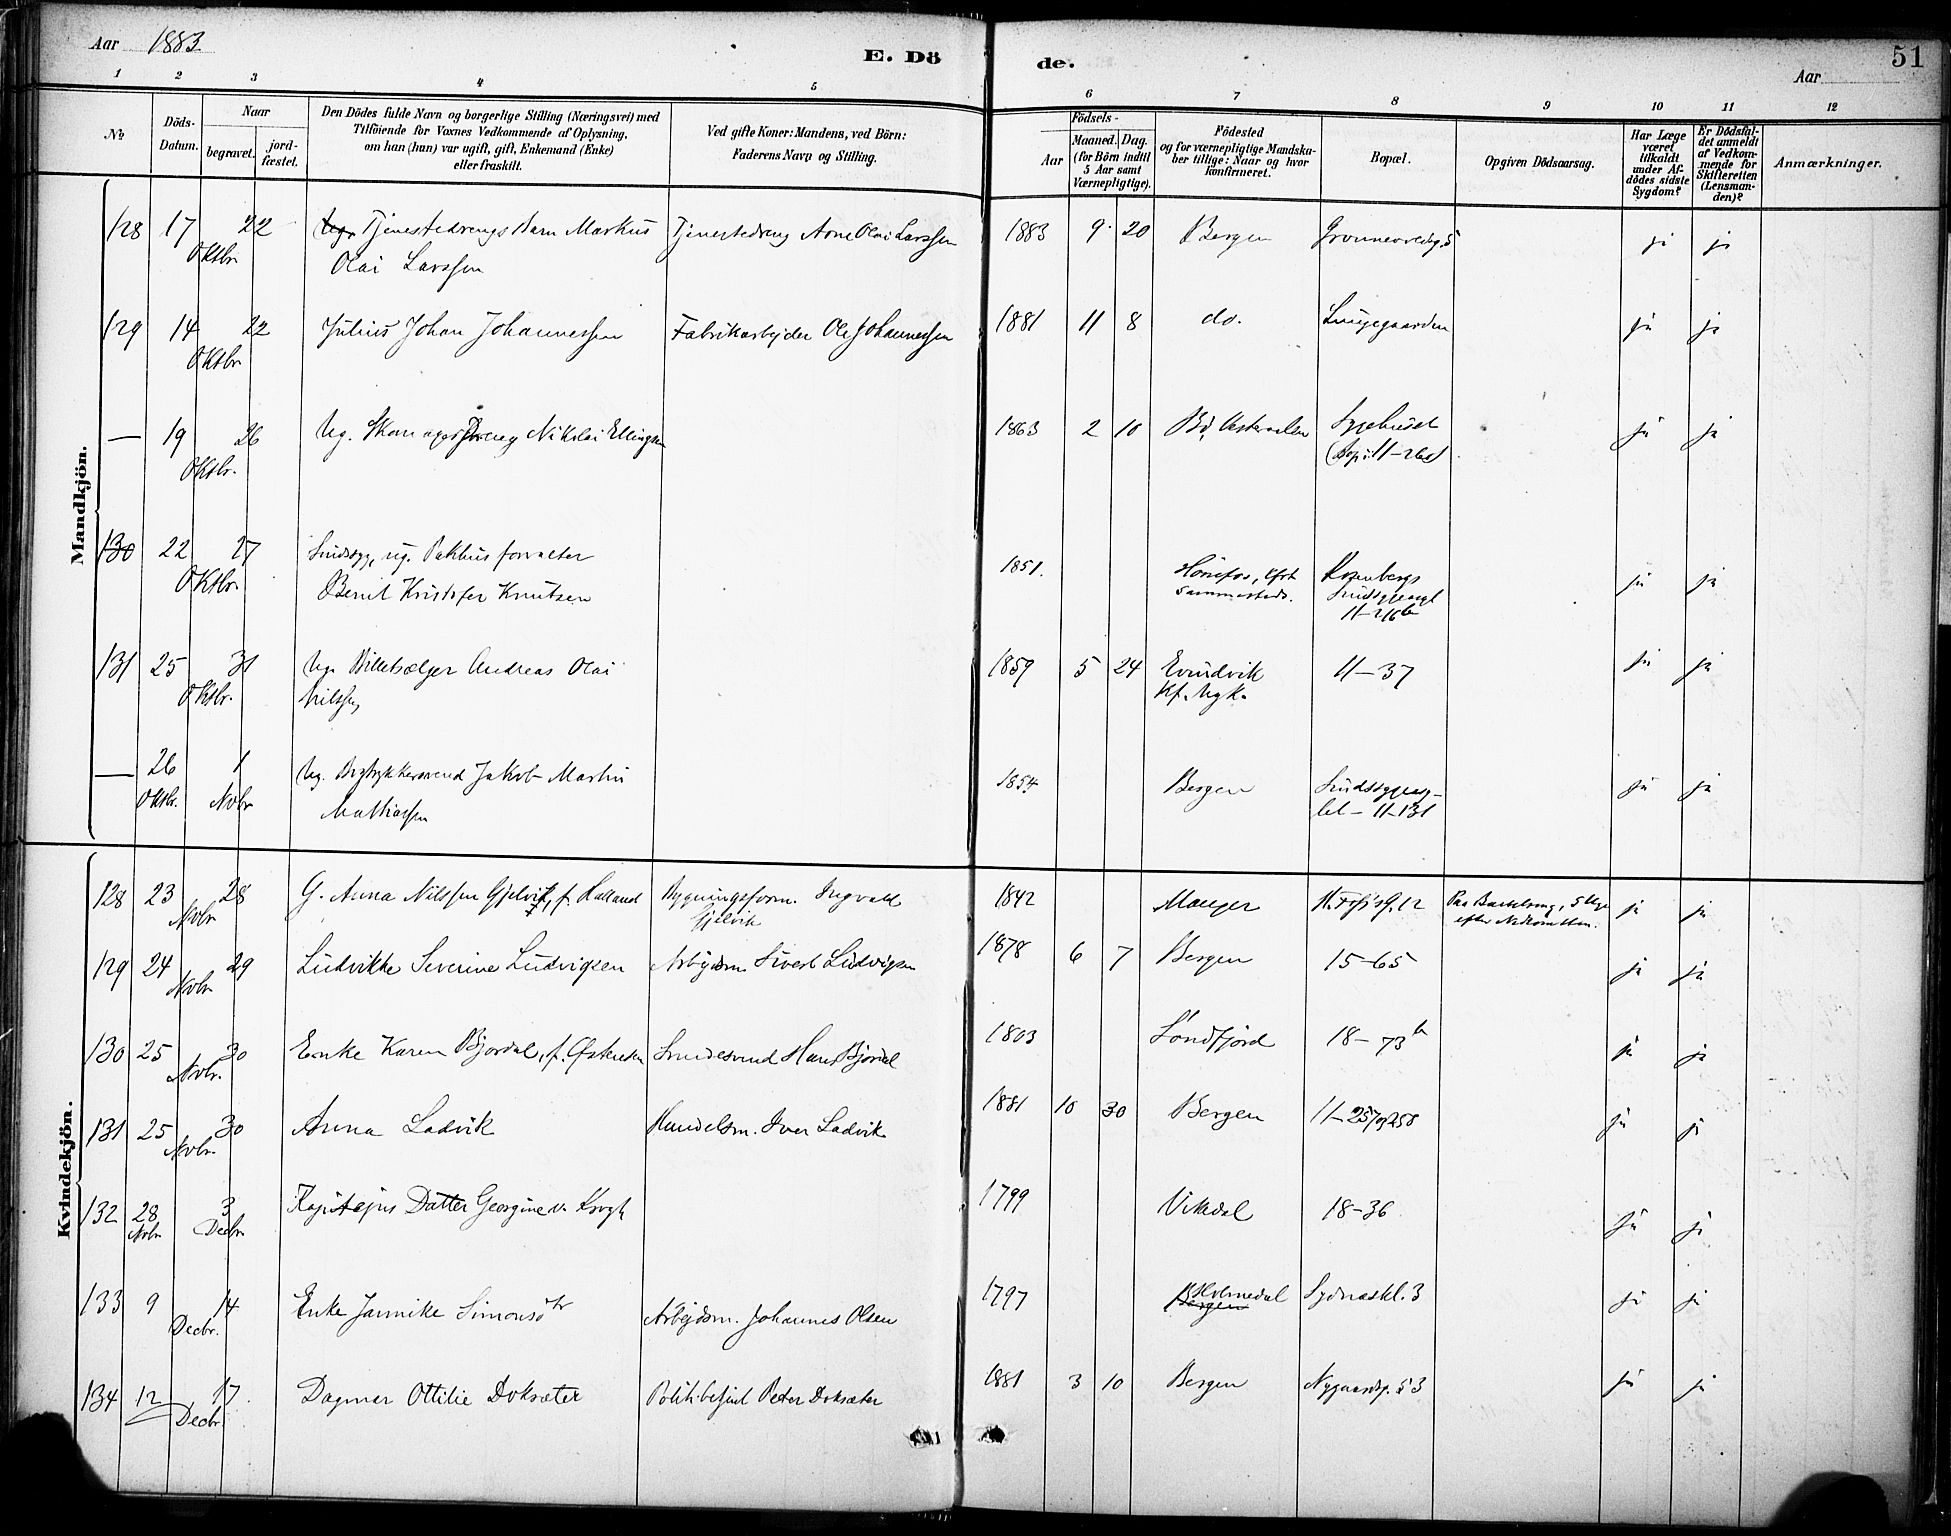 Aar 1883
E. Dö
de.
Aar
51
1 2 3 4 5 6 7 8 9 10 11 12
No
Döds-
Datum.
Naar
begravet.
jord-
fæstet.
Den Dödes fulde Navn og borgerlige Stilling (Næringsvei) med
Tilföiende for Voxnes Vedkommende af Oplysning,
om han (hun) var ugift, gift, Enkemand (Enke)
eller fraskilt.
Ved gifte Koner: Mandens, ved Börn:
Faderens Navn og Stilling.
Födsels-
Aar
Maaned. Dag.
(for Börn indtil
5 Aar samt
Værnepligtige).
Födested
og for værnepligtige Mandska-
ber tillige: Naar og hvor
konfirmeret.
Bopæl.
Opgiven Dödsaarsag.
Har Læge
været
tilkaldt
under Af-
dödes sidste
Sygdom?
Er Dödsfal-
det anmeldt
af Vedkom-
mende for
Skifteretten
(Lensman-
den)?
Anmærkninger.
Mandkjön.
128 17 22 Tjenestedrengs Barn Markus Tjenestedreng Arne Olai Larssen 1883 9 20 Bergen 5 ja ja
Oktbr. Olai Larssen
129 14 22 Julius Johan Johannessen Fabrikarbejder Ole Johannessen 1881 11 8 do. Lungegaarden ja ja
Oktbr.
— 19 26 Ug. Nikolai Ellingsen 1863 2 10 Bö, Vesteraalen Sygehuset ja ja
Oktbr.
130 22 27 Sindssyg, ug. Pakhusforvalter 1851. Rosenbergs ja ja
Oktbr. Bernt Kristofer Knutsen sammesteds. Sindssygeasyl
11–216b
131 25 31 Ug. Billetsælger Andreas Olai 1859 5 24 Evindvik 11–37 ja ja
Oktbr. Nilssen Kf. Nyk.
— 26 1 Ug. Bogtrykkersvend Jakob Martin 1854 Bergen Sindssygeasy- ja ja
Oktbr. Novbr Mathiassen let – 11–131
Kvindekjön.
128 23 28 G. Anna Nilssen Gjelvik, f. Halland Bygningsform. Ingvald 1842 Manger 12 ja ja
Novbr. Gjelvik efter Nedkomsten.
129 24 29 Ludvikke Severine Ludvigsen Arbejdsm. Sivert Ludvigsen 1878 6 7 Bergen 15–65 ja ja
Novbr.
130 25 30 Enke Karen Bjordal, f. Smedesvend Hans Bjordal 1803 Söndfjord 18–73b ja ja
Novbr.
131 25 30 Anna Ladvik Handelsm. Iver Ladvik 1881 10 30 Bergen 11–257og258 ja ja
Novbr.
132 28 3 Kapitejns Datter Georgine v. Krogh 1799 Vikedal 18–36 ja ja
Novbr. Decbr.
133 9 14 Enke Jannike Simonsdtr Arbejdsm. Johannes Olsen 1797 Holmedal Sydneskl. 3 ja ja
Decbr. Bergen
134 12 17 Dagmar Ottilie Doksæter Politibetjent Peter Doksæter 1881 3 10 Bergen Nygaardsg. 53 ja ja
Decbr.